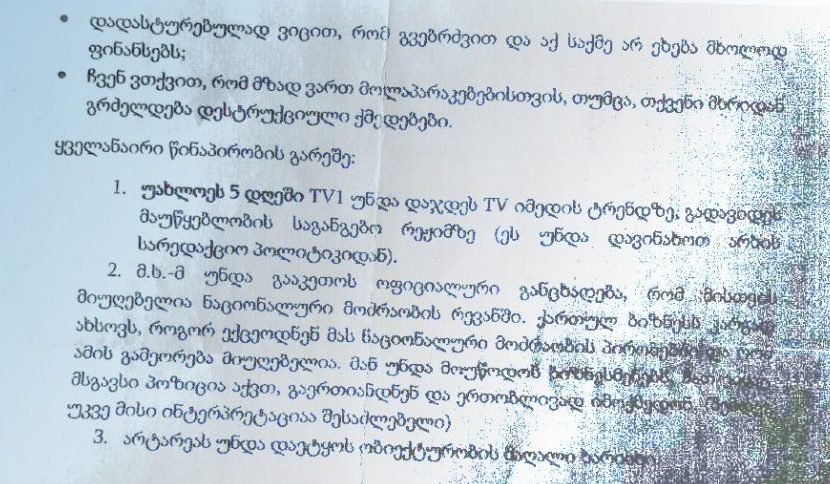 • დადასტურებულად ვიცით, რომ გვებრძვით და აქ საქმე არ ეხება მხოლოდ
ფინანსებს;
• ჩვენ ვთქვით, რომ მზად ვართ მოლაპარაკებებისთვის, თუმცა, თქვენი მხრიდან
გრძელდება დესტრუქციული ქმედებები.
ყველანაირი წინაპირობის გარეშე:
1. უახლოეს 5 დღეში TV1 უნდა დაჯდეს TV იმედის ტრენდზე, გადავიდეს
მაუწყებლობის საგანგებო რეჟიმზე (ეს უნდა დავინახოთ არხის
სარედაქციო პოლიტიკიდან).
2. მ.ხ.-მ უნდა გააკეთოს ოფიციალური განცხადება, რომ მისთვის
მიუღებელია ნაციონალური მოძრაობის რევანში. ქართულ ბიზნესს კარგად
ახსოვს, როგორ ექცეოდნენ მას ნაციონალური მოძრაობის პირობებში და რომ
ამის გამეორება მიუღებელია. მან უნდა მოუწოდოს ბიზნესმენებს,
მსგავსი პოზიცია აქვთ, გაერთიანდნენ და ერთობლივად იმოქმედონ.
უკვე მისი ინტერპრეტაციაა შესაძლებელი)
3. არტარეას უნდა დაეტყოს ობიექტურობის მაღალი ხარისხი